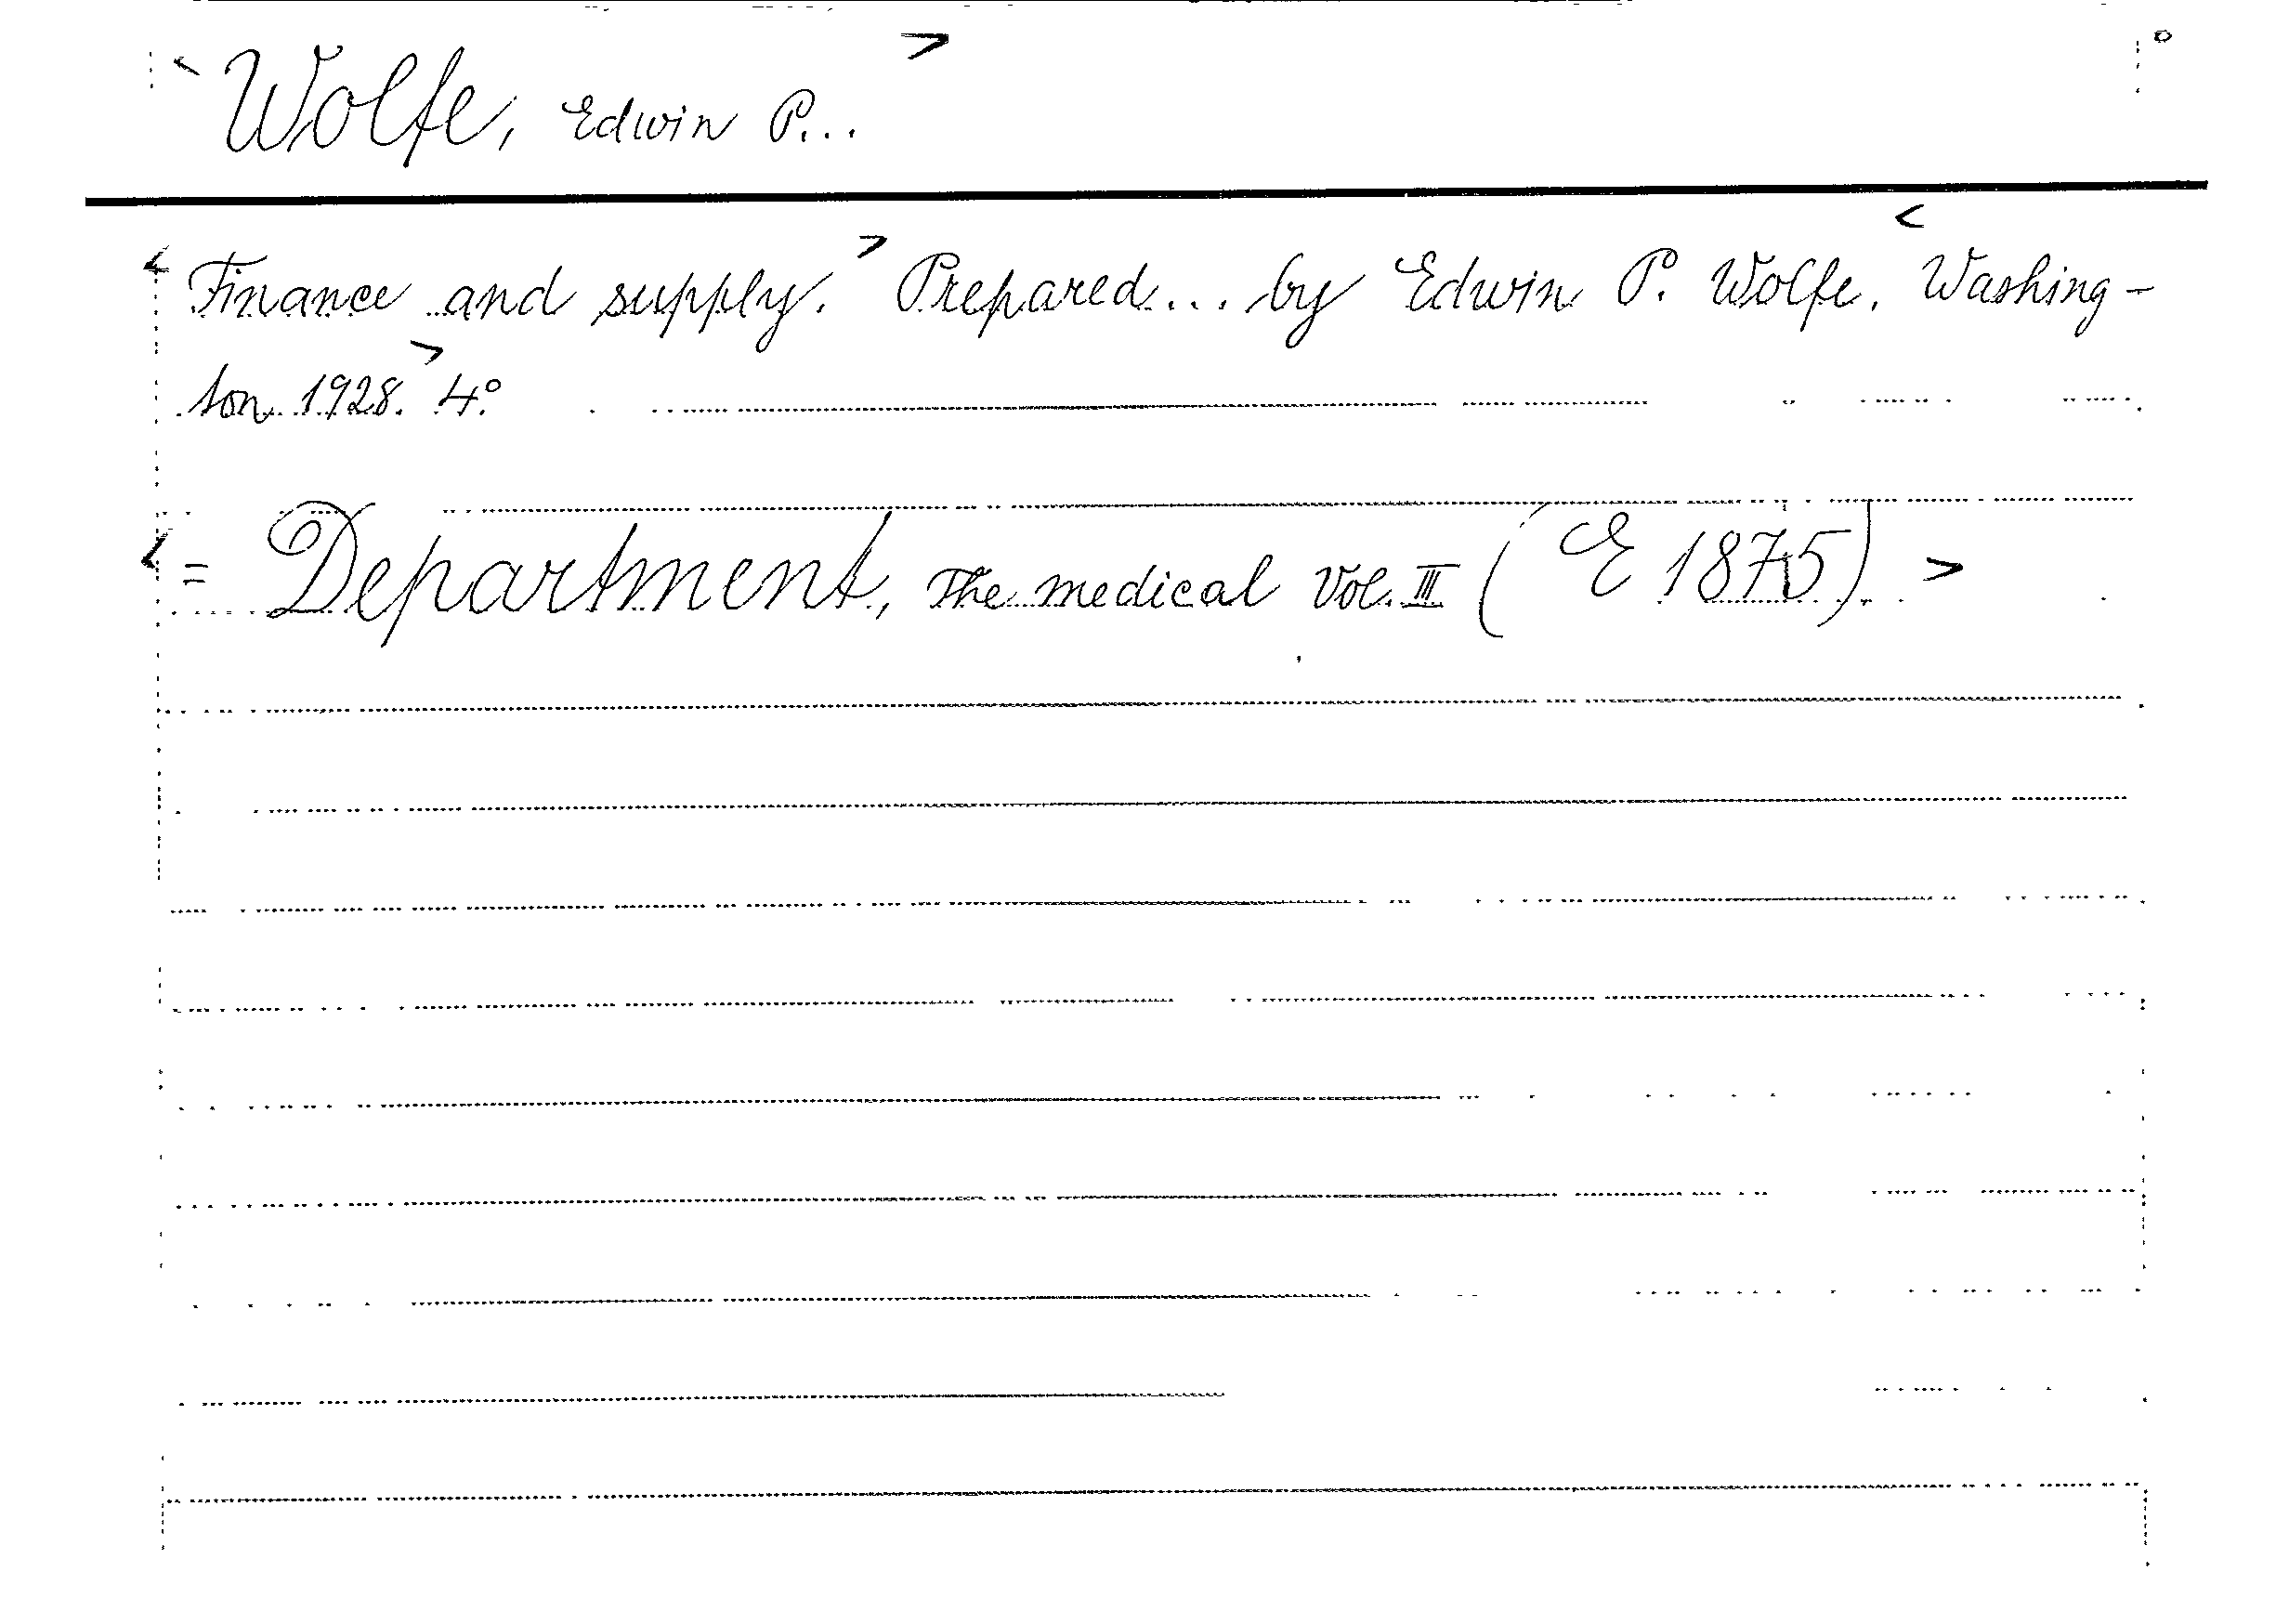 < Wolfe, Edwin P... >
< Finance and supply. > Prepared... by Edwin P. Wolfe. < Washing-
ton 1928. > 4°
< = Department, The medical Vol. III (E 1875) >